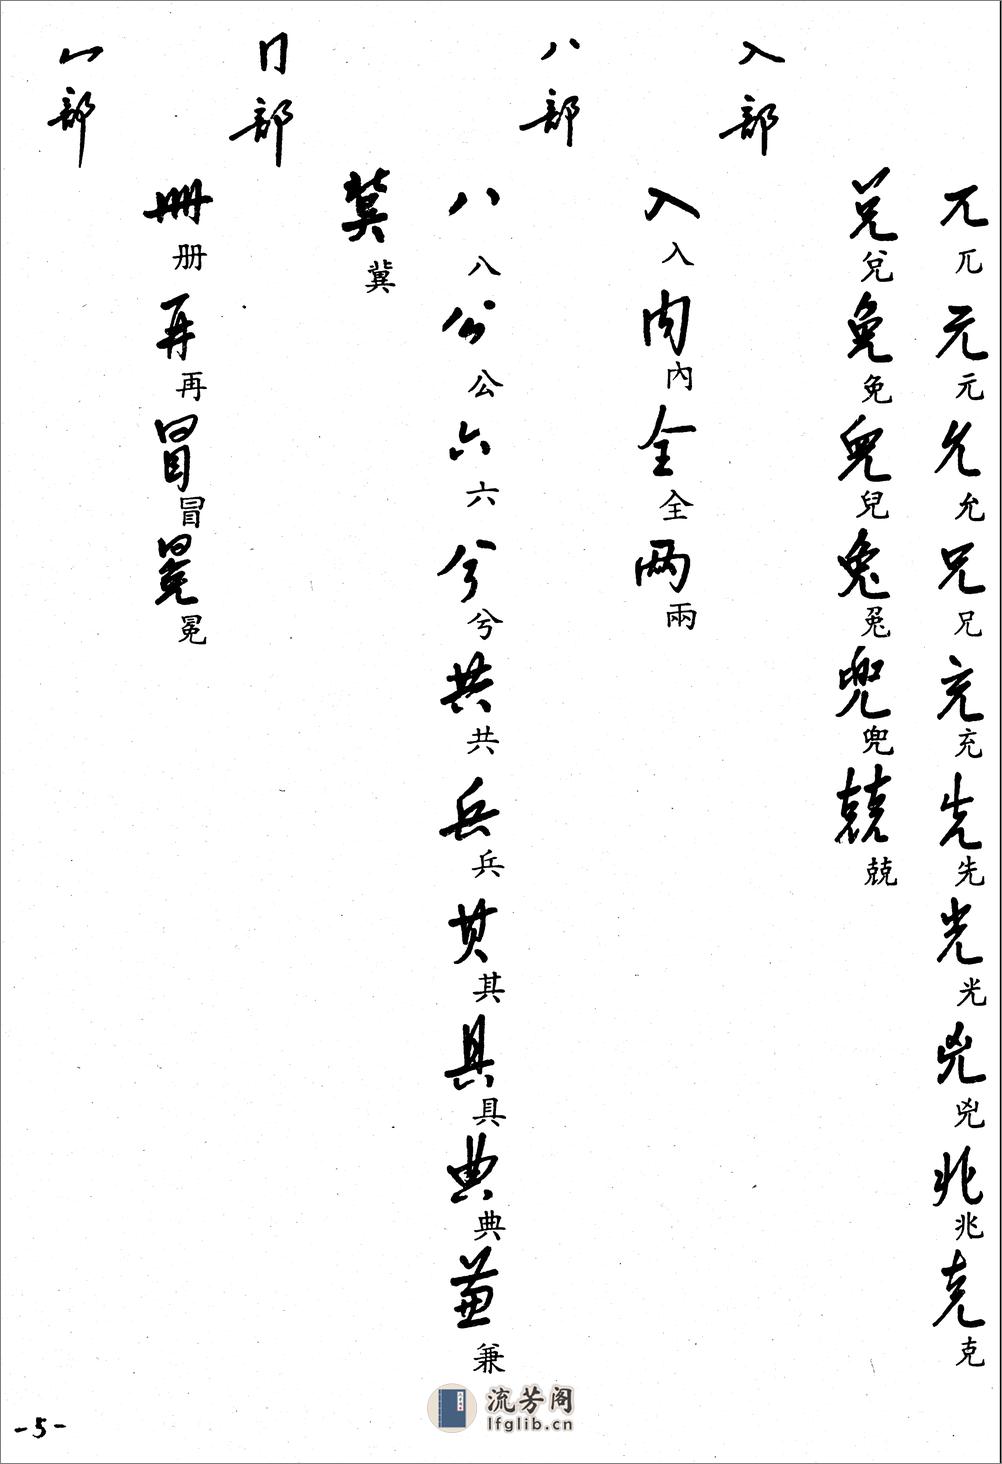 兀兀元元允允兄兄充充先先光光兇兇兆兆克克
兌兌免免兒兒兔兔兜兜兢兢
入部
入入內內全全兩兩
八部
八八公公六六兮兮共共兵兵其其具具典典兼兼
冀冀
冂部
冊冊再再冒冒冕冕
冖部
-5-
流芳阁
lfglib.cn